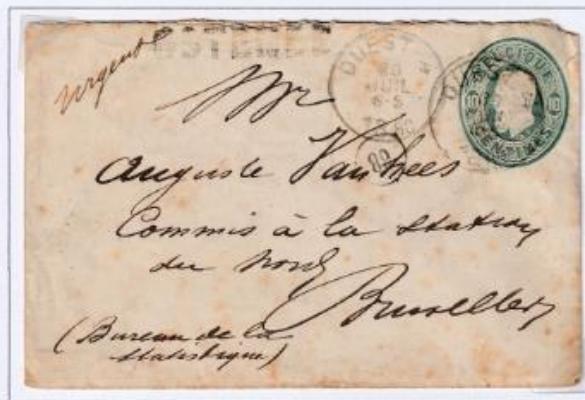 Urgent
OUEST
BELGIQUE
28
JUIL
6-S
10 10
CENTIMES
Mr
Auguste Vanhees
Commis à la station
du Nord
Bruxelles
(Bureau de la
statistique)